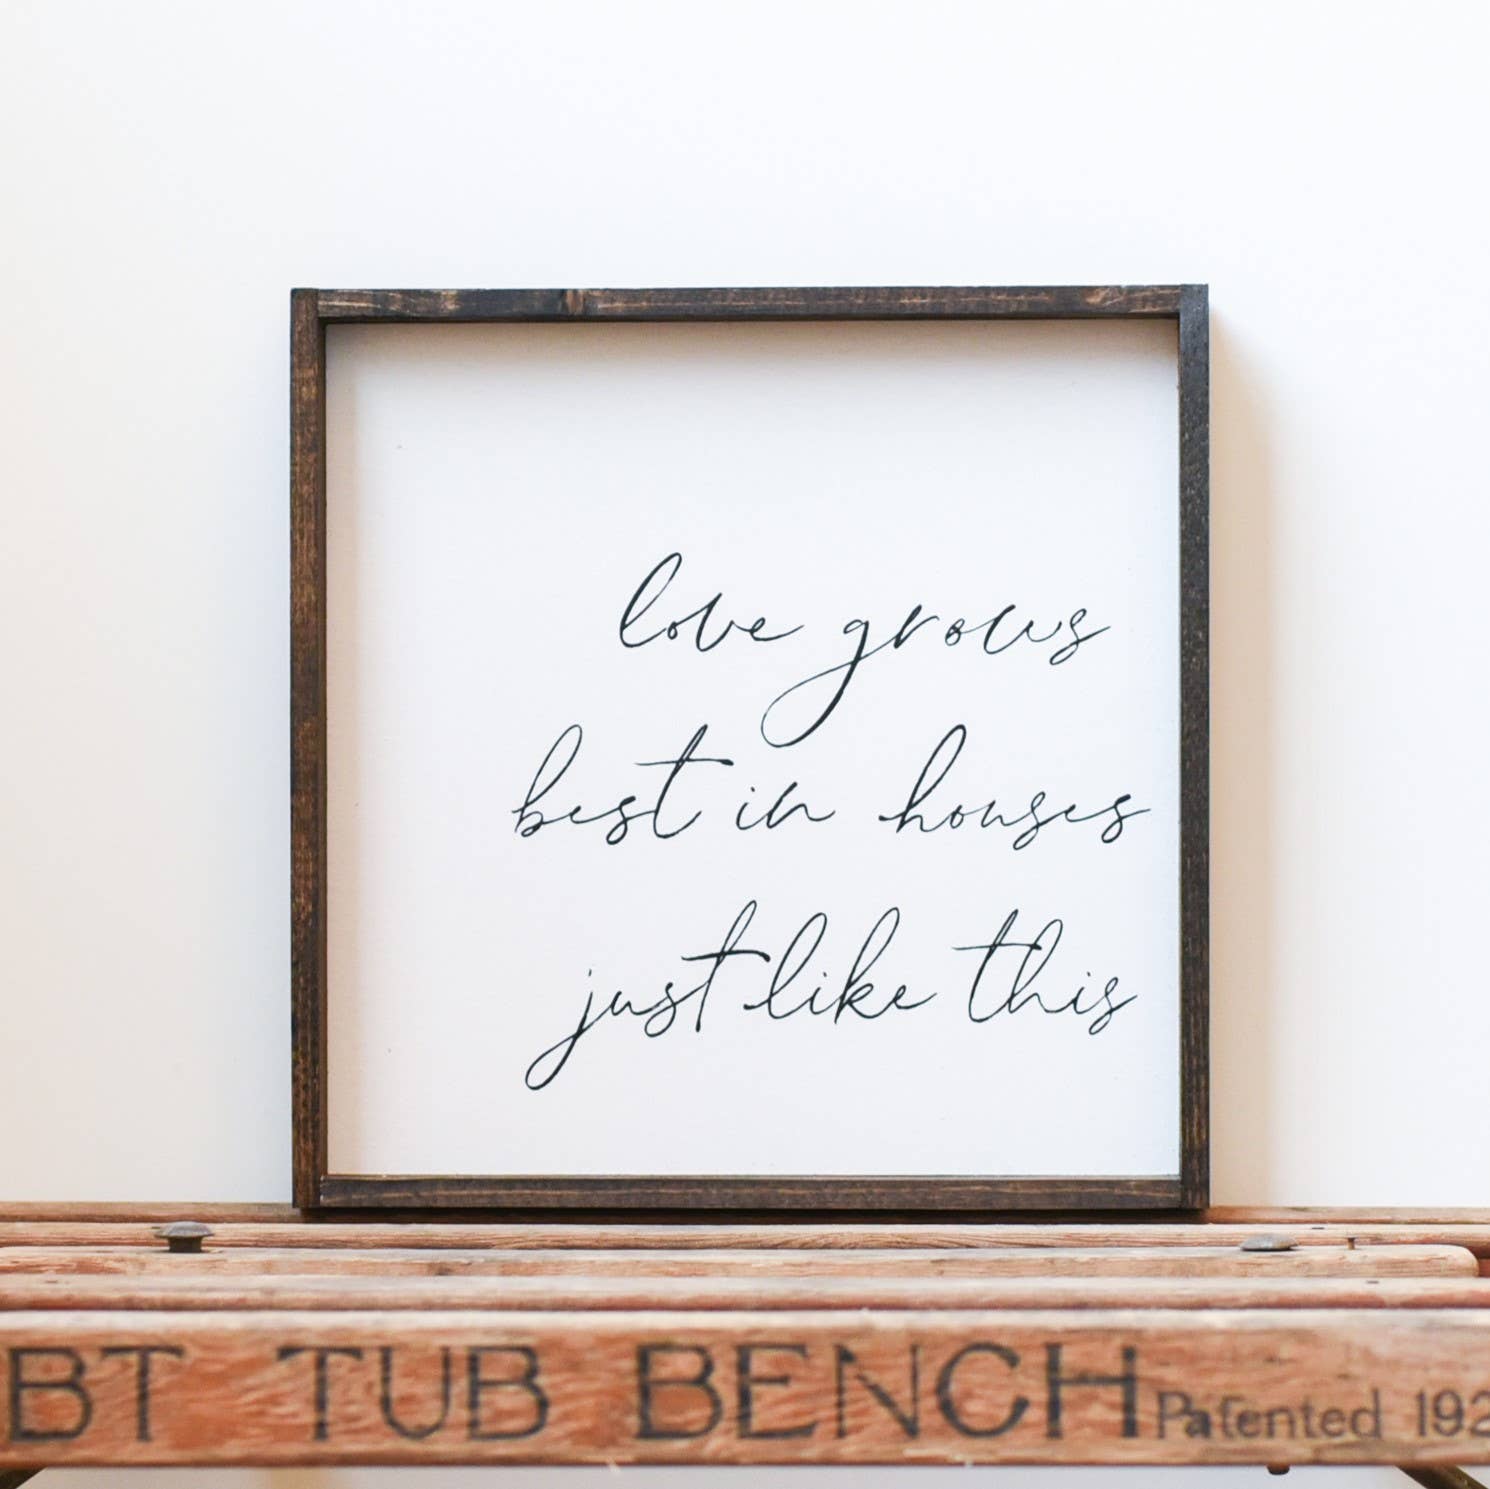 love grows
best in houses
just like this
BT TUB BENCH Patented 192